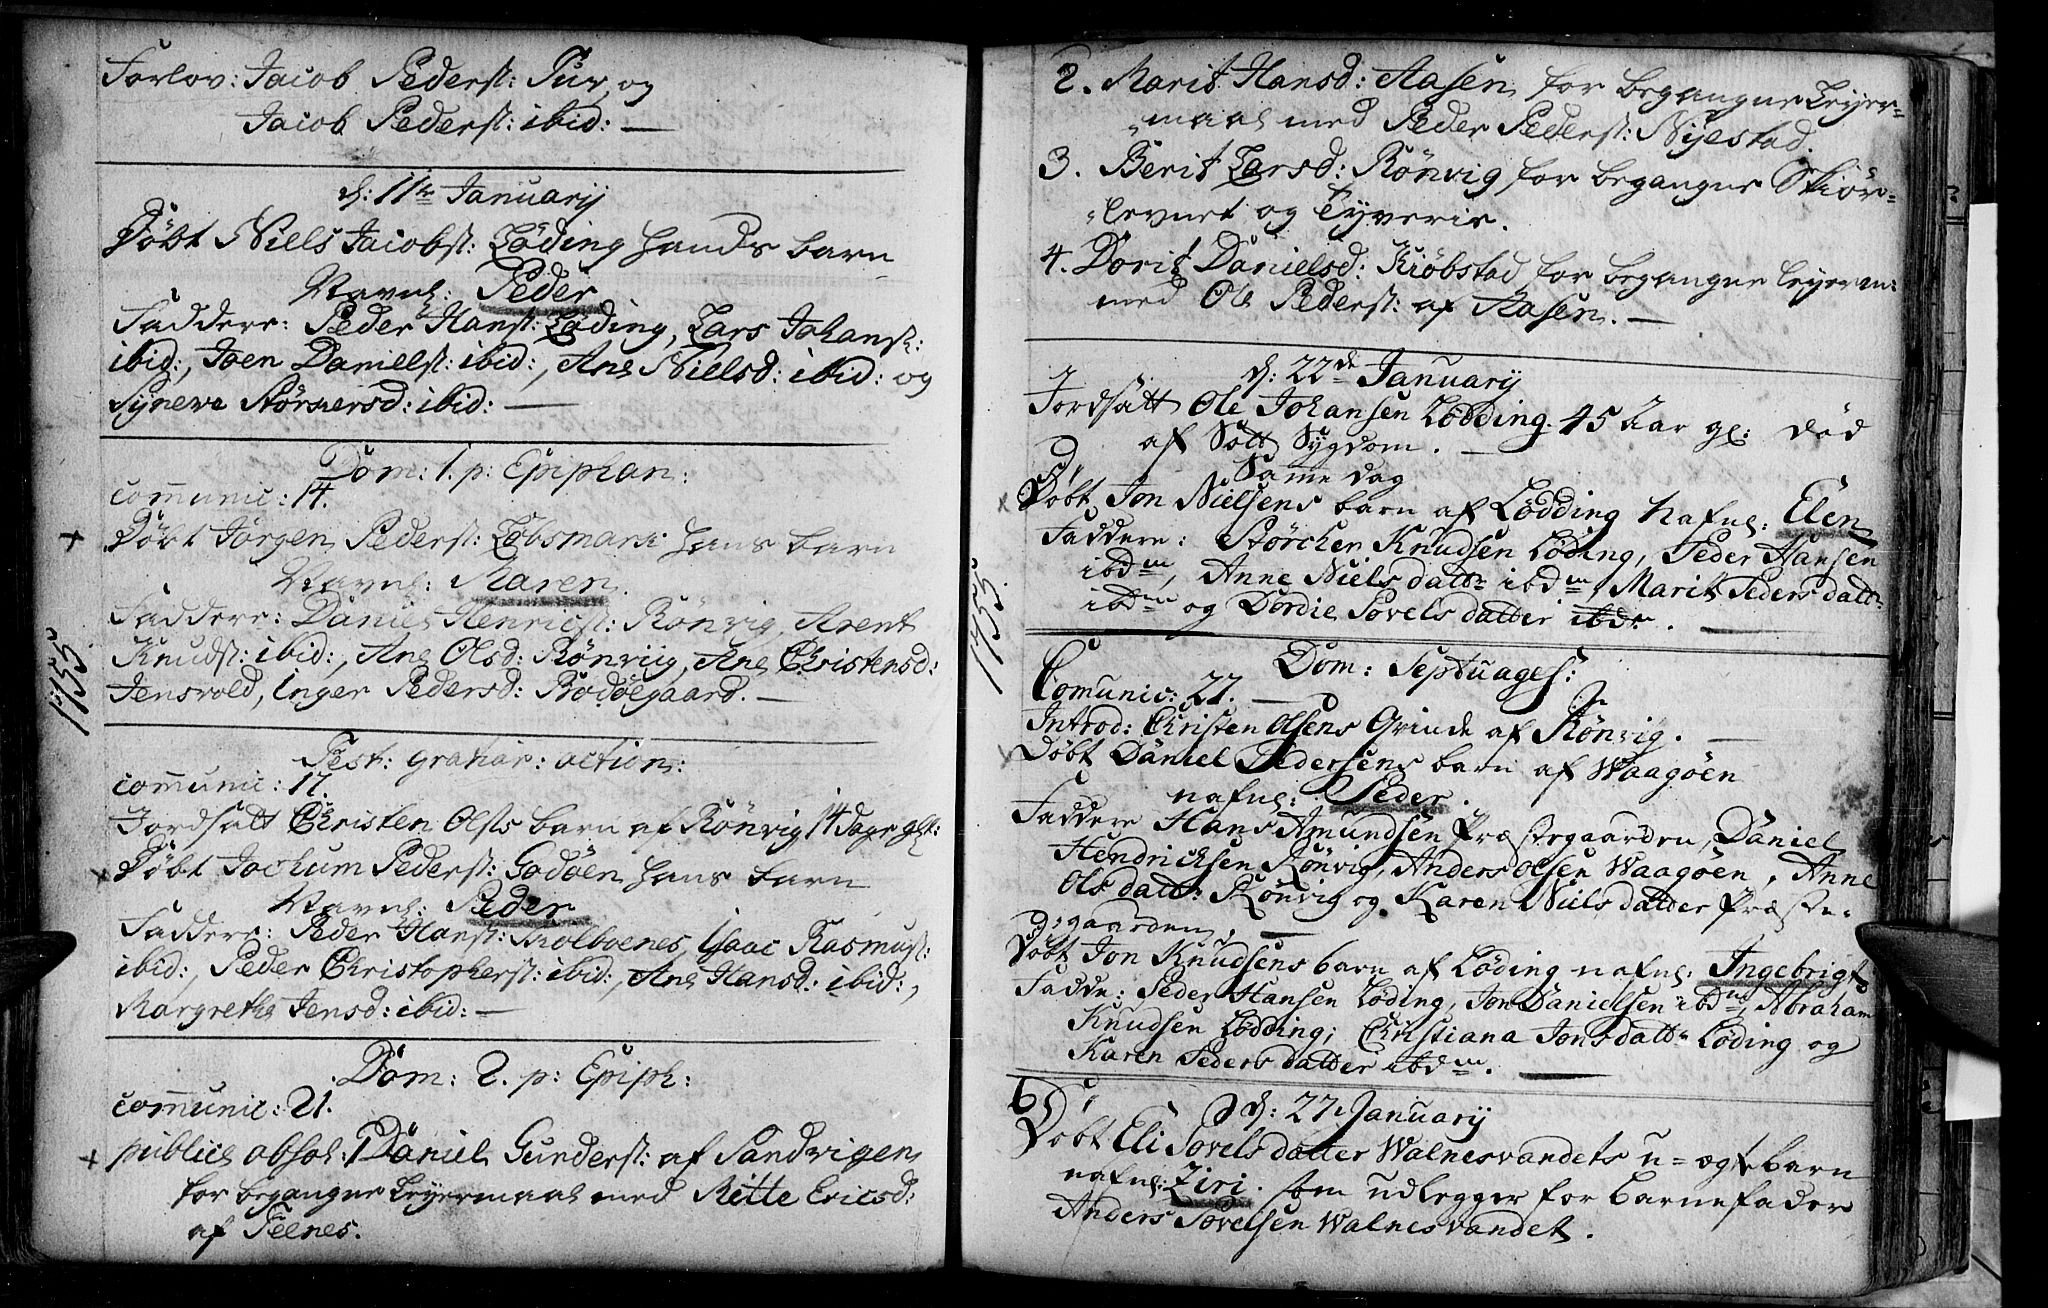 Forlov: Jacob Pederst: Tuv, og
Jacob Pederst: ibid: —
d: 11te Januarij
Döbt Niels Jacobst: Löding hands barn
Navnl: Peder
Faddere: Peder Hanst: Löding, Lars Johanst:
ibid:, Joen Danielst: ibid:, Ane Nielsd: ibid: og
Syneve Störkersd: ibid: —
Dom: 1. p: Epiphan:
communic: 14.
Döbt Jörgen Pederst: Löbsmark hans barn
Navnl: Maren.
Faddere: Daniel Henrichst: Rönvig, Arent
Knudst: ibid:, Ane Olsd: Rönviig, Ane Christensd:
Jensvold, Inger Pedersd: Bodöegaard. —
1755.
Fest: gratiar: action:
communic: 17.
Jordsatt Christen Olsts barn af Rönvig 14 dage glt:
Döbt Jochum Pederst: Godöen hans barn
Navnl: Peder
Faddere: Peder Hanst: Kolboenes, Isaac Rasmust:
ibid:, Peder Christopherst: ibid:, Ane Hansd: ibid:,
Margrethe Jensd: ibid: —
Dom: 2. p: Epiph:
communic: 21.
publice absol: 1 Daniel Gunderst: af Sandvigen
for begangne Leyermaal med Mette Ericsd:
af Feenes.
2. Marit Hansd: Aasen for begangne Leyer=
maal med Peder Pederst: Nyestad.
3. Berit Larsd: Rönvig for begangne Skiör=
levnet og Tyverie.
4. Dorit Danielsd: Kiöbstad for begangne leyerm:
med Ole Pederst: af Aasen. —
d: 22de Januarij
Jordsatt Ole Johansen Lödding 45 Aar gl: död
af Sott Sygdom. —
Samme dag
Döbt Jon Nielsens barn af Lödding Nafnl: Elen
Faddere: Störchen Knudsen Löding, Peder Hansen
ibdm, Anne Niels datt: ibdm, Marit Peders datt:
ibdm og Dordie Sovels datter ibdm. —
1755.
Dom: Septuages:
Comunic: 27. —
Introd: Christen Olsens Qvinde af Rönvig. —
Döbt Daniel Pedersens barn af Waagöen
nafnl: Peder.
Faddere Hans Amundsen Præstegaarden, Daniel
Hendrichsen Rönvig, Anders Olsen Waagöen, Anne
Ols datt: Rönvig og Karen Niels datter Præste=
gaarden. —
Döbt Jon Knudsens barn af Löding nafnl: Ingebrigt
Fadde: Peder Hansen Löding, Jon Danielsen ibdm, Abraham
Knudsen Lödding; Christiana Jonsdatt: Löding og
Karen Peders datter ibdm. —
d: 27 Januarij
Döbt Eli Sovels datter Walnesvandets u=ægte barn
nafnl: Ziri. som udlegger for barnefader
Anders Sovelsen Walnesvandet.